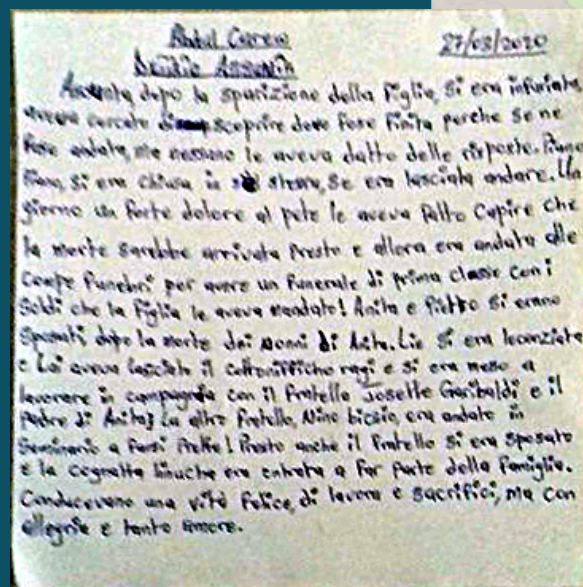 Abdul Carew 27/03/2020
Assunta dopo la sparizione della figlia, si era infuriata,
aveva cercato di scoprire dove fose finita perche se ne
fose andata, ma nessuno le aveva datto delle risposte. Piano
Piano, si era chiusa in se stessa, se era lasciata andare. Un
giorno un forte dolore al peto le aveva fatto Capire che
la morte sarebbe arrivata Presto e allora era andata alle
Pompe funebri per avere un funerale di prima classe con i
Soldi che la figlia le aveva mandato! Anita e Pietro si erano
Sposati dopo la morte dei nonni di Anita. Lie si era licenziata
e Lui aveva lasciato il cottonifficho ragi e si era messo a
lavorare in compagnia con il fratello Josette Garibaldi e il
Padre di Anita; La altro fratello, Nino bicsio, era andato in
Seminario a farsi Prette! Presto anche il fratello si era sposato
e la cognatta era entrata a far parte della famiglia.
Conducevano una vita felice, di lavoro e sacrifici, ma con
allegria e tanto amore.